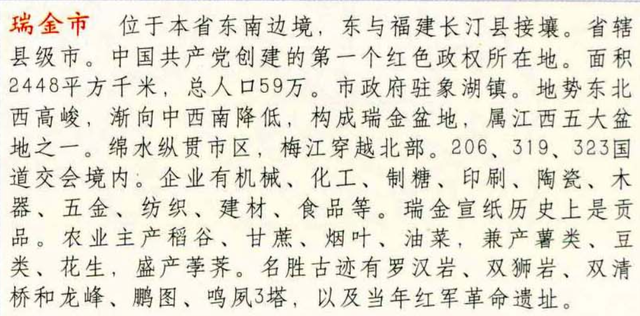 瑞金市 位于本省东南边境，东与福建长汀县接壤。省辖
县级市。中国共产党创建的第一个红色政权所在地。面积
2448平方千米，总人口59万。市政府驻象湖镇。地势东北
西高峻，渐向中西南降低，构成瑞金盆地，属江西五大盆
地之一。绵水纵贯市区，梅江穿越北部。206、319、323国
道交会境内。企业有机械、化工、制糖、印刷、陶瓷、木
器、五金、纺织、建材、食品等。瑞金宣纸历史上是贡
品。农业主产稻谷、甘蔗、烟叶、油菜，兼产薯类、豆
类、花生，盛产荸荠。名胜古迹有罗汉岩、双狮岩、双清
桥和龙峰、鹏图、鸣夙3塔，以及当年红军革命遗址。